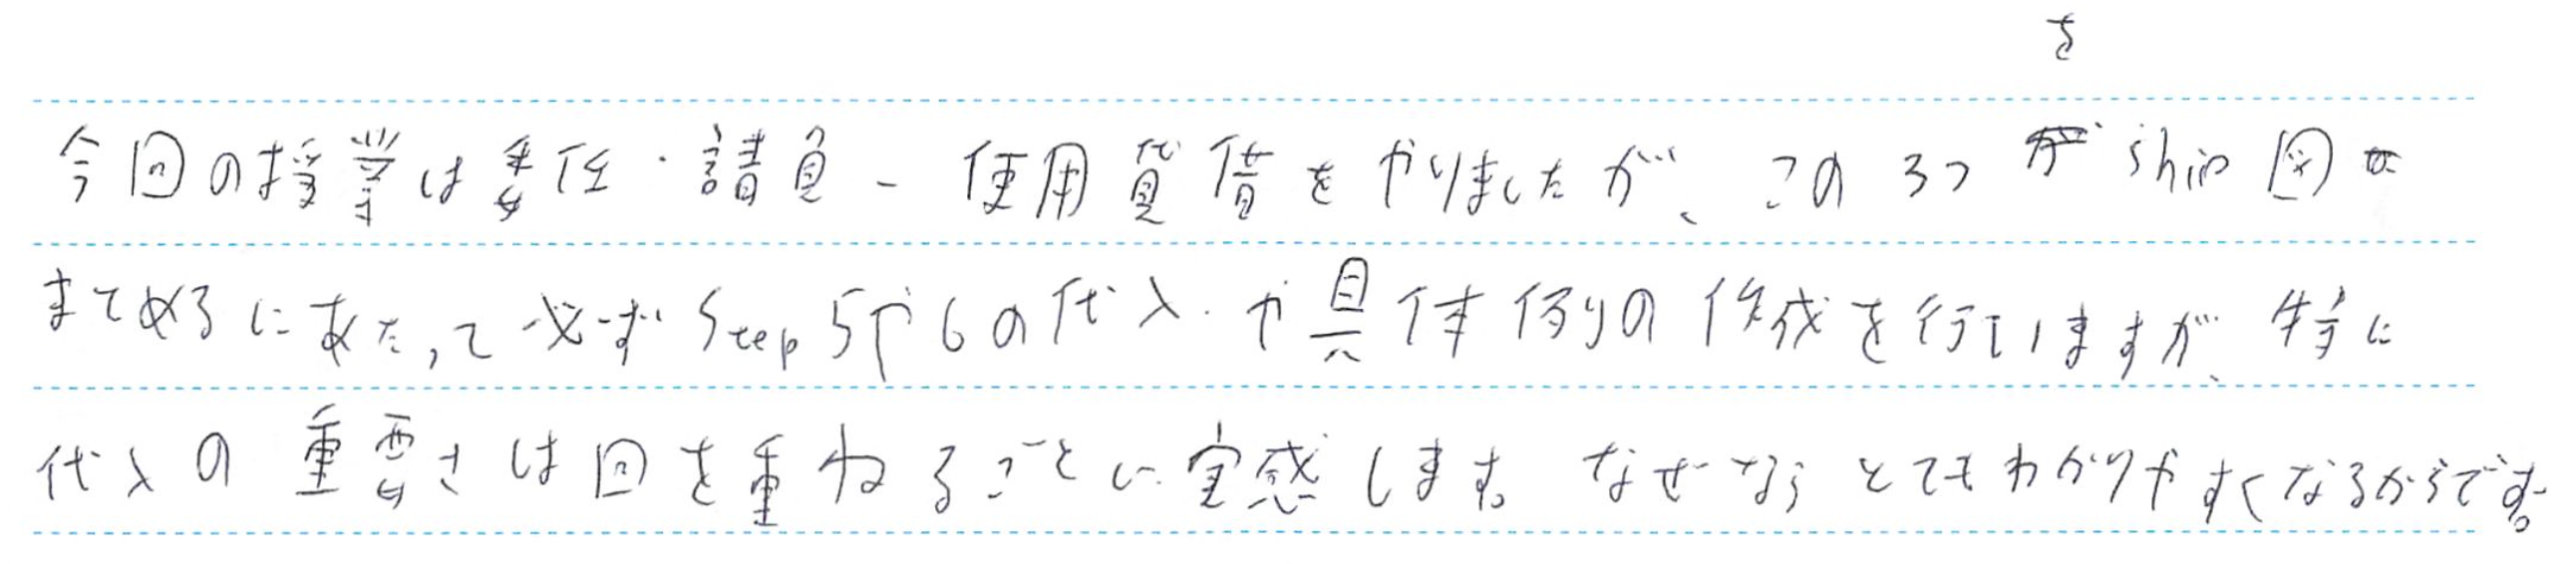 を
今回の授業は委任・請負・使用貸借をやりましたが、この3つ が ship図を
まてめるにあたって必ずStep5や6の代入.や具体例の作成を行いますが、特に
代入の重要さは回を重ねるごとに実感します。なぜならとてもわかりやすくなるからです。